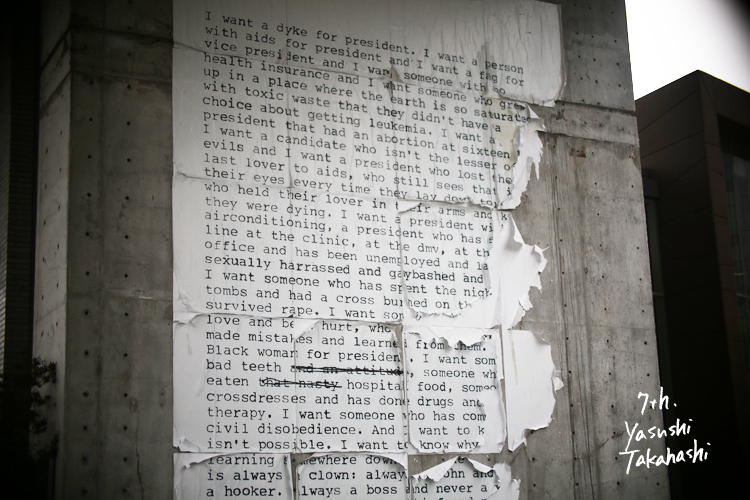 I want a dyke for president. I want a person
with aids for president and I want a fag for
vice president and I want someone with no
health insurance and I want someone who grew
up in a place where the earth is so saturate
with toxic waste that they didn't have a
choice about getting leukemia. I want a
president that had an abortion at sixteen
I want a candidate who isn't the lesser o
evils and I want a president who lost the
last lover to aids, who still sees that i
their eyes every time they lay down to
who held their lover in their arms and k
they were dying. I want a president wi
airconditioning, a president who has s
line at the clinic, at the dmv, at th
office and has been unemployed and la
sexually harrassed and gaybashed and
I want someone who has spent the nigh
tombs and had a cross burned on th
survived rape. I want som
love and be hurt, who
made mistakes and learned from them.
Black woman for president. I want som
bad teeth and an attitude, someone wh
eaten that nasty hospital food, someo
crossdresses and has done drugs and
therapy. I want someone who has com
civil disobedience. And I want to k
isn't possible. I want to know why
learning somewhere down
is always a clown: always john and
a hooker. Always a boss and never a
7th.
Yasushi
Takahashi